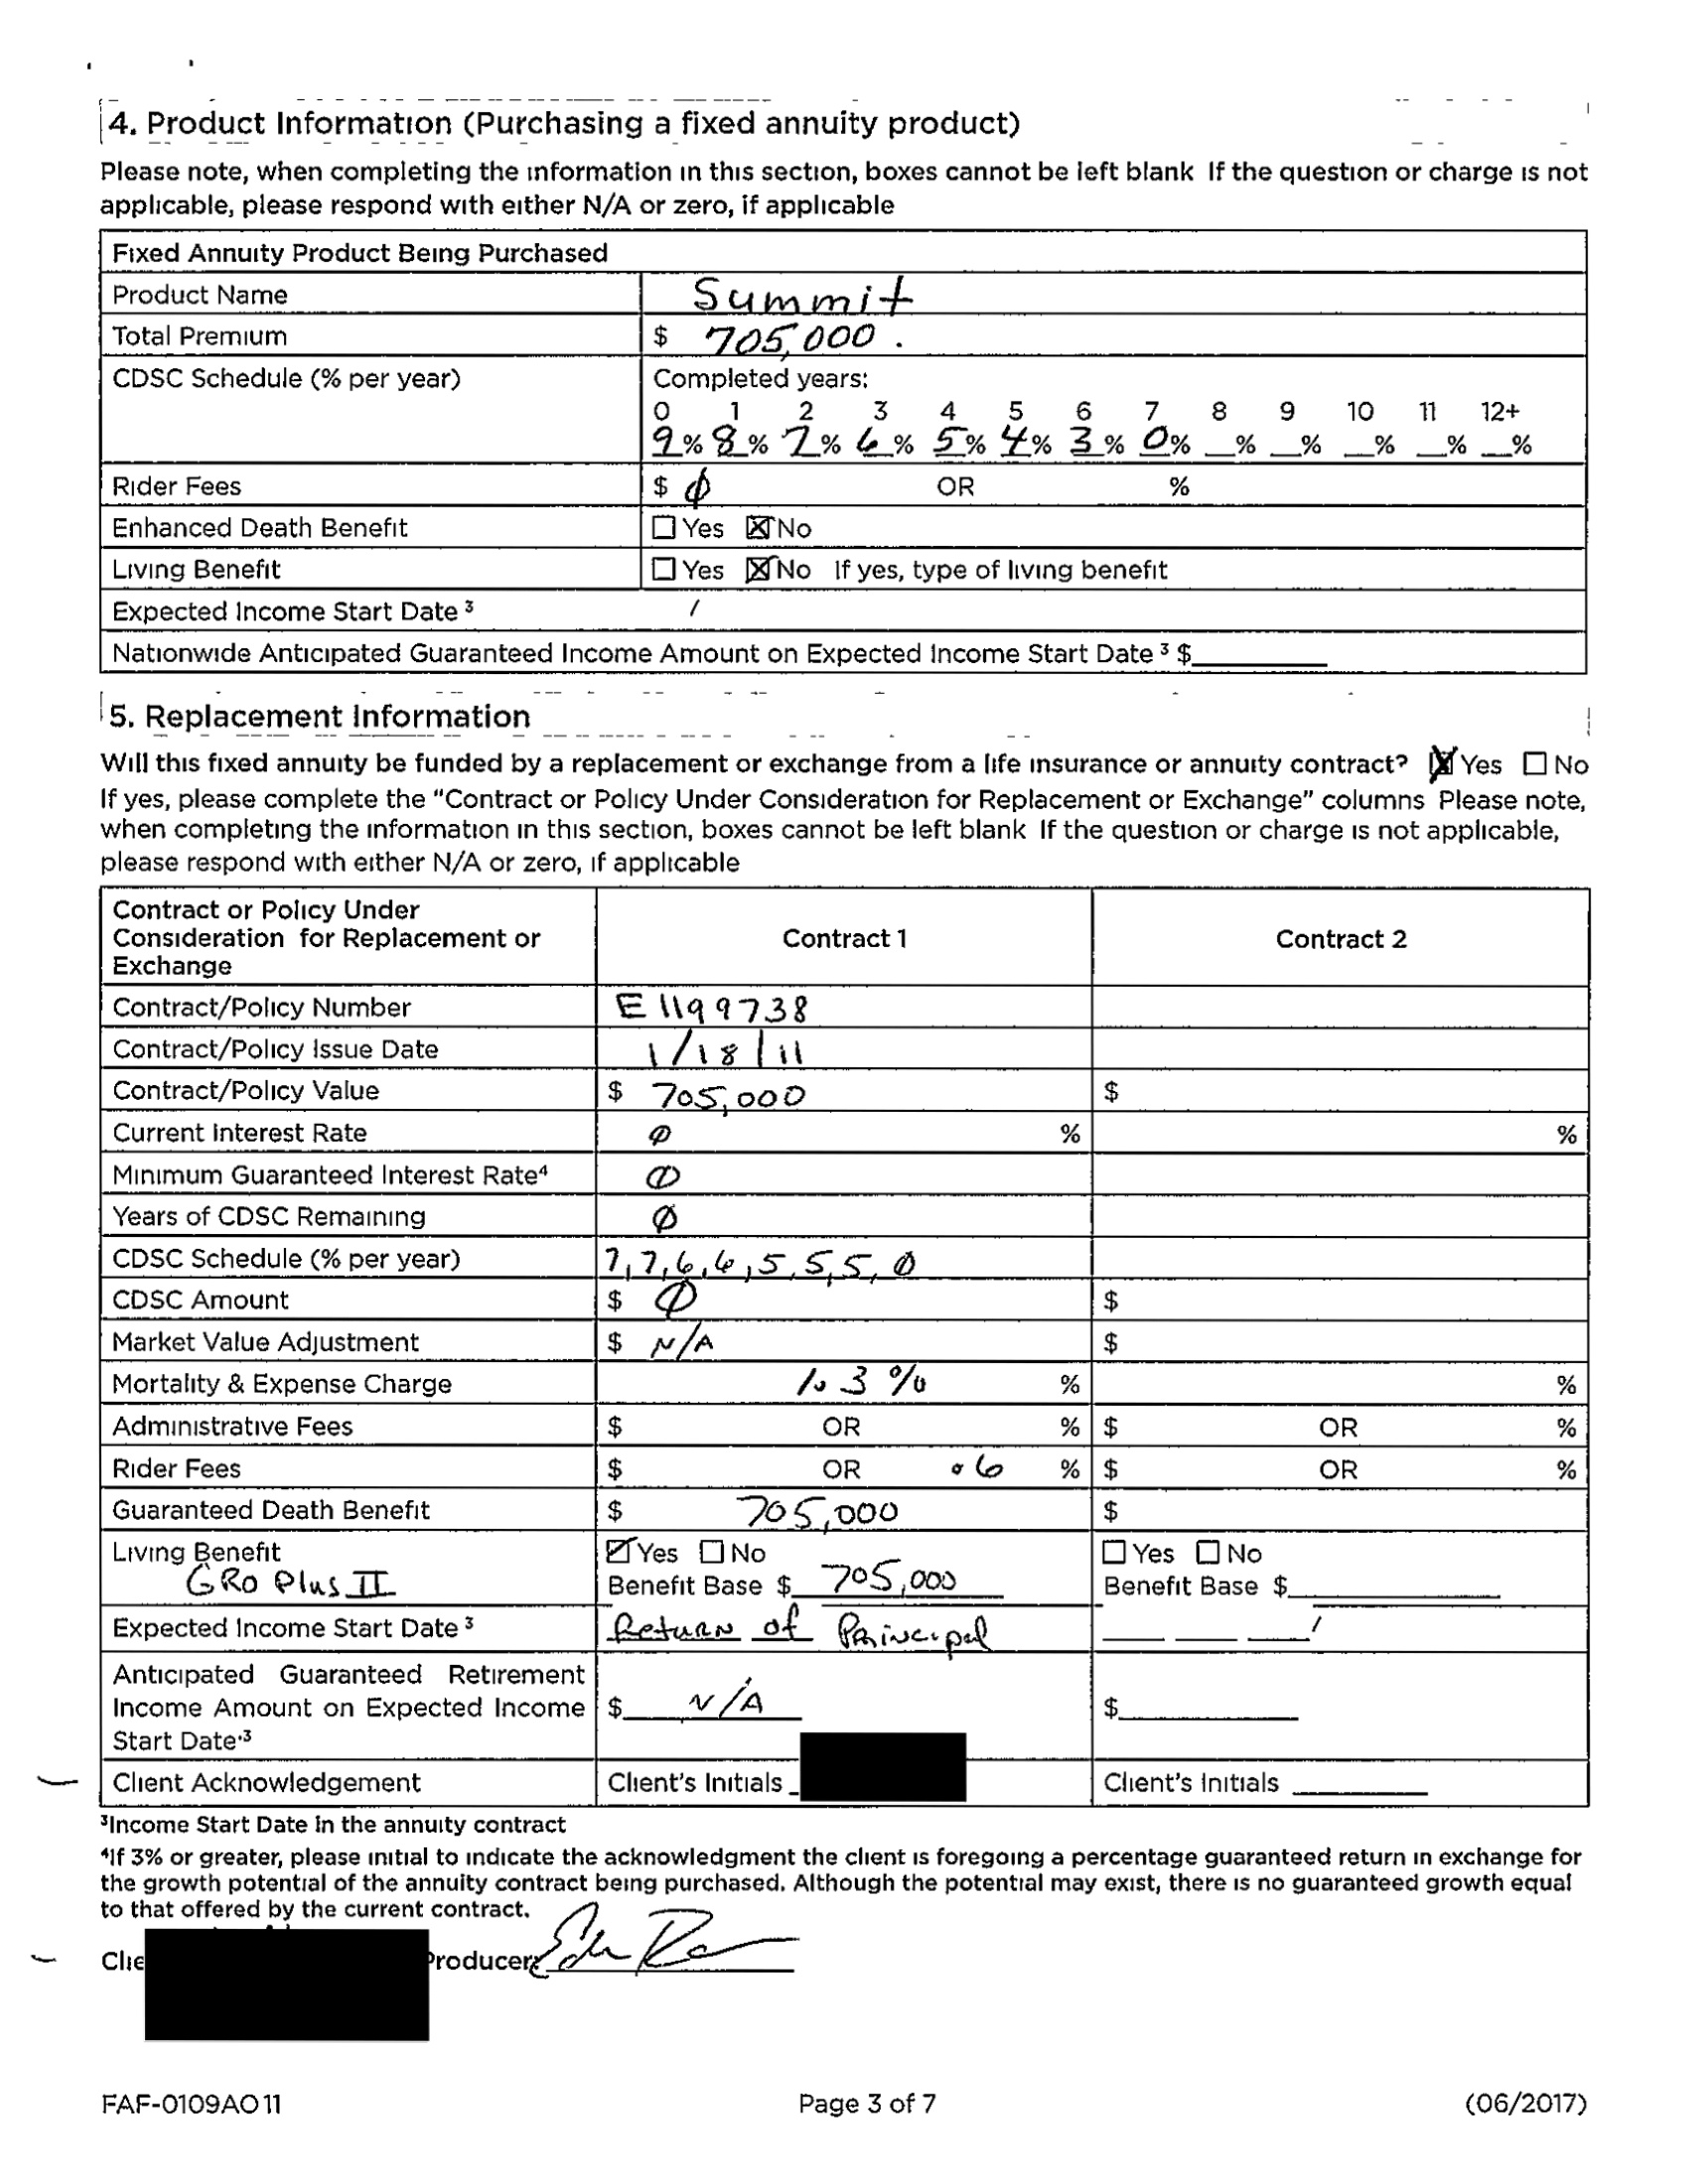 4. Product Information (Purchasing a fixed annuity product)
Please note, when completing the information in this section, boxes cannot be left blank If the question or charge is not
applicable, please respond with either N/A or zero, if applicable
Fixed Annuity Product Being Purchased
Product Name Summit
Total Premium $ 705,000.
CDSC Schedule (% per year) Completed years:
0 1 2 3 4 5 6 7 8 9 10 11 12+
9% 8% 7% 6% 5% 4% 3% 0% __% __% __% __% __%
Rider Fees $ 0 OR %
Enhanced Death Benefit ☐ Yes ☒ No
Living Benefit ☐ Yes ☒ No If yes, type of living benefit
Expected Income Start Date ³ /
Nationwide Anticipated Guaranteed Income Amount on Expected Income Start Date ³ $
5. Replacement Information
Will this fixed annuity be funded by a replacement or exchange from a life insurance or annuity contract? ☒ Yes ☐ No
If yes, please complete the "Contract or Policy Under Consideration for Replacement or Exchange" columns Please note,
when completing the information in this section, boxes cannot be left blank If the question or charge is not applicable,
please respond with either N/A or zero, if applicable
Contract or Policy Under
Consideration for Replacement or
Exchange
Contract 1 Contract 2
Contract/Policy Number E1199738
Contract/Policy Issue Date 1/18/11
Contract/Policy Value $ 705,000 $
Current Interest Rate 0 % %
Minimum Guaranteed Interest Rate⁴ 0
Years of CDSC Remaining 0
CDSC Schedule (% per year) 7,7,6,6,5,5,5,0
CDSC Amount $ 0 $
Market Value Adjustment $ N/A $
Mortality & Expense Charge 1.3% % %
Administrative Fees $ OR % $ OR %
Rider Fees $ OR .6 % $ OR %
Guaranteed Death Benefit $ 705,000 $
Living Benefit ☑ Yes ☐ No ☐ Yes ☐ No
GRO Plus II Benefit Base $ 705,000 Benefit Base $
Expected Income Start Date ³ Return of Principal /
Anticipated Guaranteed Retirement
Income Amount on Expected Income $ N/A $
Start Date·³
Client Acknowledgement Client's Initials Client's Initials
³Income Start Date in the annuity contract
⁴If 3% or greater, please initial to indicate the acknowledgment the client is foregoing a percentage guaranteed return in exchange for
the growth potential of the annuity contract being purchased. Although the potential may exist, there is no guaranteed growth equal
to that offered by the current contract.
Clie Producer:
FAF-0109AO 11 Page 3 of 7 (06/2017)